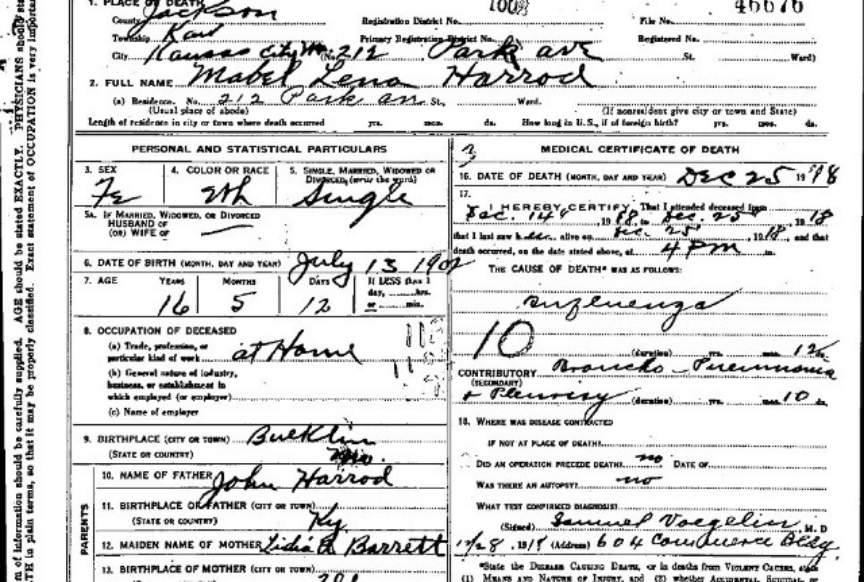 1. PLACE OF DEATH
County Jackson Registration District No. File No. 46676
Township Kaw Primary Registration District No. Registered No.
City Kansas City Mo (No. 212 Park ave St. Ward)
2. FULL NAME Mabel Lena Harrod
(a) Residence. No. 212 Park ave St., Ward.
(Usual place of abode) (If nonresident give city or town and State)
Length of residence in city or town where death occurred yrs. mos. ds. How long in U. S., if of foreign birth? yrs. mos. ds.
PERSONAL AND STATISTICAL PARTICULARS
3. SEX 4. COLOR OR RACE 5. SINGLE, MARRIED, WIDOWED OR
DIVORCED (write the word)
Fe Wh Single
5A. IF MARRIED, WIDOWED, OR DIVORCED
HUSBAND OF
(OR) WIFE OF
6. DATE OF BIRTH (MONTH, DAY AND YEAR) July 13 1902
7. AGE YEARS MONTHS DAYS If LESS than 1
day, hrs.
or min.
16 5 12
8. OCCUPATION OF DECEASED
(a) Trade, profession, or
particular kind of work at Home
(b) General nature of industry,
business, or establishment in
which employed (or employer)
(c) Name of employer
9. BIRTHPLACE (CITY OR TOWN) Bucklin
(STATE OR COUNTRY) Mo.
PARENTS
10. NAME OF FATHER John Harrod
11. BIRTHPLACE OF FATHER (CITY OR TOWN)
(STATE OR COUNTRY) Ky
12. MAIDEN NAME OF MOTHER Lidia A Barrett
13. BIRTHPLACE OF MOTHER (CITY OR TOWN)
MEDICAL CERTIFICATE OF DEATH
16. DATE OF DEATH (MONTH, DAY AND YEAR) Dec 25 1918
17.
I HEREBY CERTIFY, That I attended deceased from
Dec. 14, 1918, to Dec. 25, 1918
that I last saw h alive on Dec. 25, 1918, and that
death occurred, on the date stated above, at 4 PM m.
THE CAUSE OF DEATH* WAS AS FOLLOWS:
Influenza
10
(duration) yrs. mos. 12 ds.
CONTRIBUTORY Broncho-Pneumonia
(SECONDARY)
+ Pleurisy (duration) yrs. mos. 10 ds.
18. WHERE WAS DISEASE CONTRACTED
IF NOT AT PLACE OF DEATH?
DID AN OPERATION PRECEDE DEATH? no DATE OF
WAS THERE AN AUTOPSY? no
WHAT TEST CONFIRMED DIAGNOSIS?
(Signed) Samuel Voegelin, M. D
12/28, 1918 (Address) 604 Commerce Bldg.
*State the DISEASE CAUSING DEATH, or in deaths from VIOLENT CAUSES, state
(1) MEANS AND NATURE OF INJURY, and (2) whether ACCIDENTAL, SUICIDAL, or
m of information should be carefully supplied. AGE should be stated EXACTLY. PHYSICIANS should sta
TH in plain terms, so that it may be properly classified. Exact statement of OCCUPATION is very importan